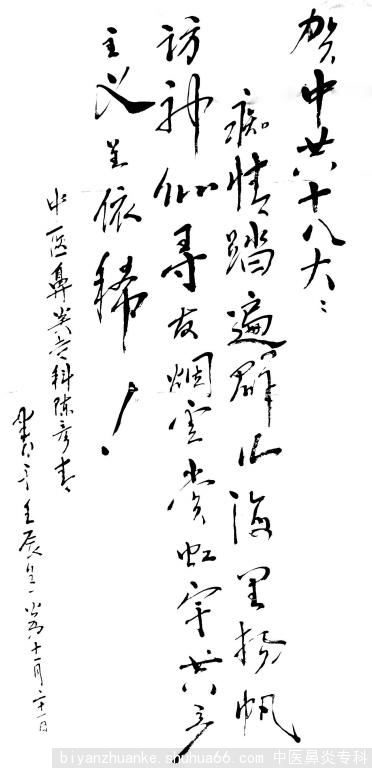 贺中共十八大：
痴情踏遍群山海里扬帆
访神仙寻友烟云赏虹宇共产
主义呈依稀！
中医鼻炎专科陈彦青
书于壬辰 十一月二十一日
biyanzhuanke.shuhua66.com 中医鼻炎专科